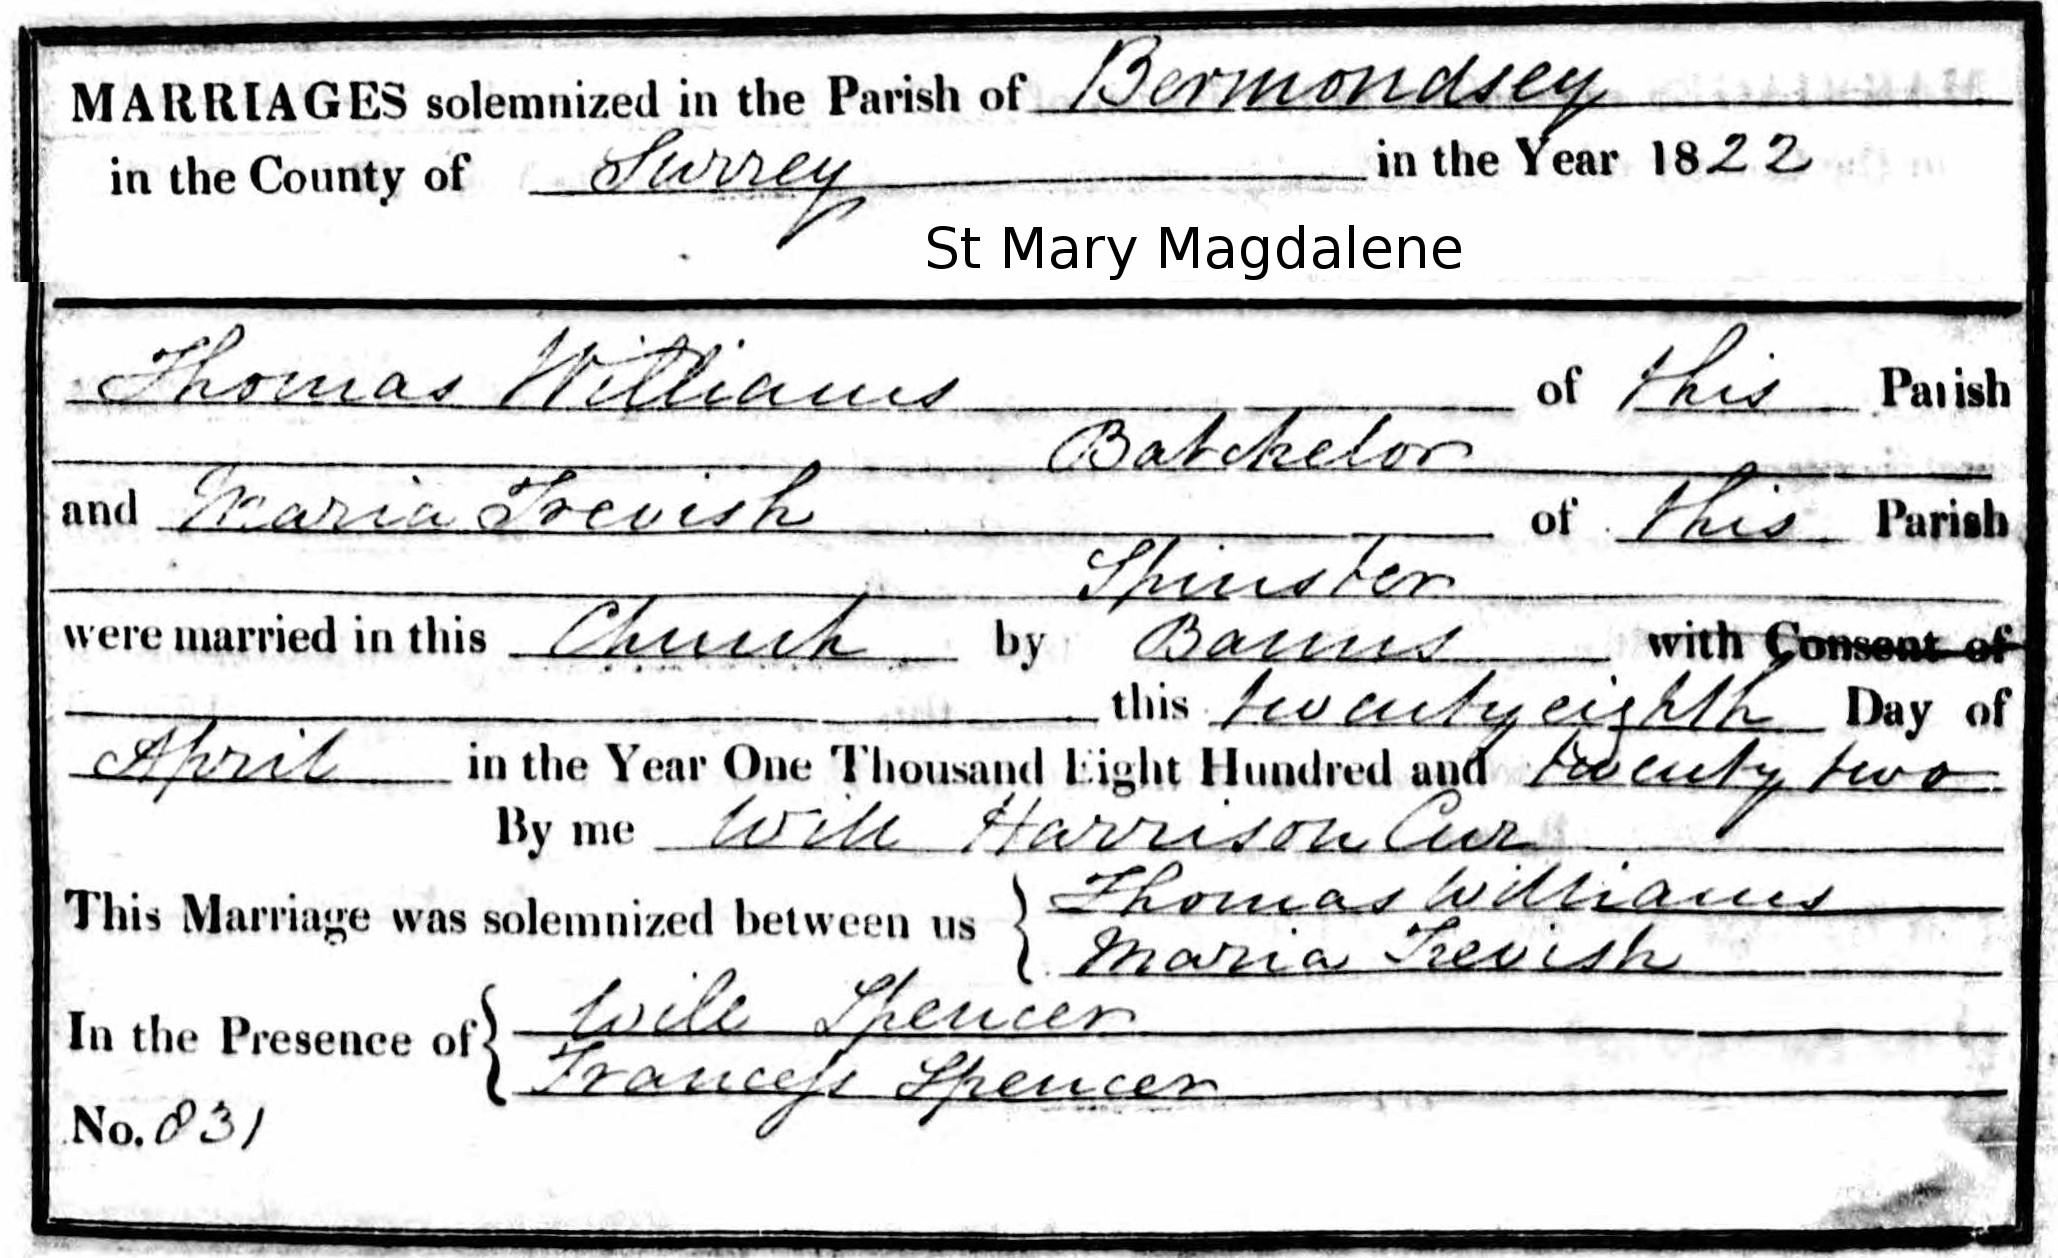 MARRIAGES solemnized in the Parish of Bermondsey
in the County of Surrey in the Year 1822
St Mary Magdalene
Thomas Williams of this Parish
Batchelor
and Maria Trevish of this Parish
Spinster
were married in this Church by Banns with Consent of
this twenty eighth Day of
April in the Year One Thousand Eight Hundred and twenty two
By me Will Harrison Cur
This Marriage was solemnized between us { Thomas Williams
Maria Trevish
In the Presence of { Will Spencer
Francess Spencer
No. 831